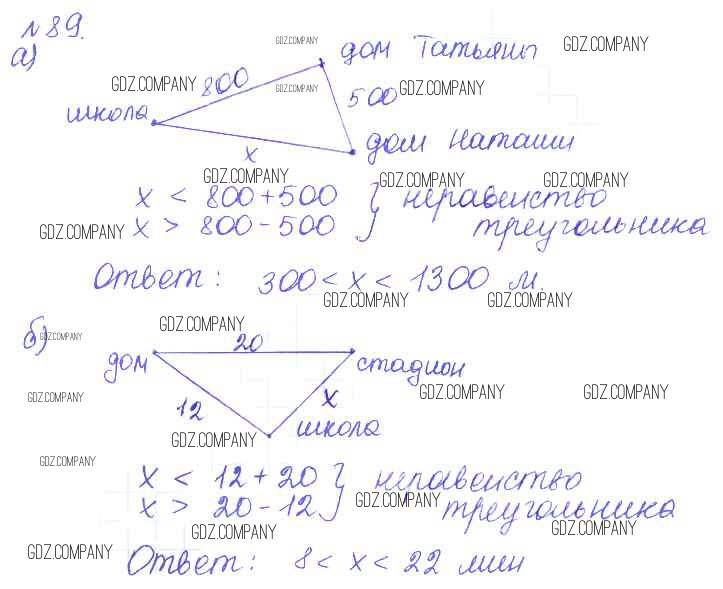 №89.
а)
GDZ.COMPANY
дом Татьяны GDZ.COMPANY
GDZ.COMPANY 800 GDZ.COMPANY 500 GDZ.COMPANY
школа
x
дом Наташи
GDZ.COMPANY GDZ.COMPANY GDZ.COMPANY
x < 800+500 } неравенство
GDZ.COMPANY x > 800-500 треугольника
Ответ: 300 < x < 1300 м.
GDZ.COMPANY GDZ.COMPANY
GDZ.COMPANY
б) GDZ.COMPANY
20
дом стадион
GDZ.COMPANY 12 x GDZ.COMPANY GDZ.COMPANY
GDZ.COMPANY школа
GDZ.COMPANY
x < 12+20 } неравенство
x > 20-12 GDZ.COMPANY треугольника
GDZ.COMPANY GDZ.COMPANY
GDZ.COMPANY Ответ: 8 < x < 22 мин